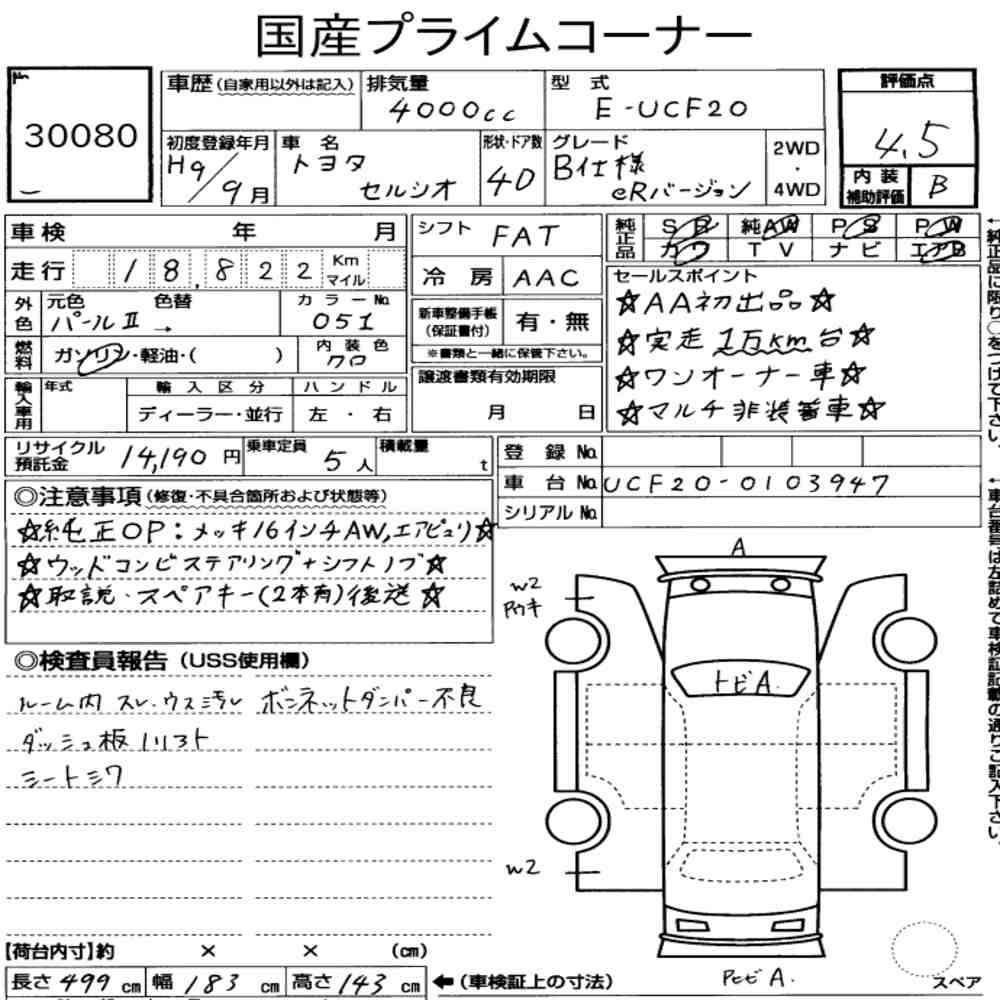 国産プライムコーナー
30080
車歴(自家用以外は記入)
排気量
4000cc
型式
E-UCF20
評価点
4.5
内装補助評価
B
初度登録年月
H9/9月
車名
トヨタ
セルシオ
形状・ドア数
4D
グレード
B仕様
eRバージョン
2WD
・
4WD
車検 年 月
走行 18,822 Km マイル
シフト FAT
冷房 AAC
純正品
SR 純AW PS PW
カワ TV ナビ エアB
外色
元色 色替
パールⅡ →
カラーNo.
051
燃料
ガソリン・軽油・( )
内装色
クロ
新車整備手帳(保証書付)
有・無
※書類と一緒に保管下さい。
セールスポイント
☆AA初出品☆
☆実走1万km台☆
☆ワンオーナー車☆
☆マルチ非装着車☆
輸入車用
年式
輸入区分
ディーラー・並行
ハンドル
左・右
譲渡書類有効期限
月 日
リサイクル預託金
14,190円
乗車定員
5人
積載量
t
登録No.
車台No. UCF20-0103947
シリアルNo.
◎注意事項(修復・不具合箇所および状態等)
☆純正OP:メッキ16インチAW,エアピュリ☆
☆ウッドコンビステアリング+シフトノブ☆
☆取説・スペアキー(2本有)後送☆
◎検査員報告(USS使用欄)
ルーム内 スレ・ウス汚レ
ボンネットダンパー不良
ダッシュ板ハリヨト
シートシワ
A
W2
トビA
W2
PセビA.
スペア
【荷台内寸】約 × × (cm)
長さ499cm 幅183cm 高さ143cm
←(車検証上の寸法)
←純正品に限り○をつけて下さい。
←車台番号は左詰めで車検証記載の通りご記入下さい。